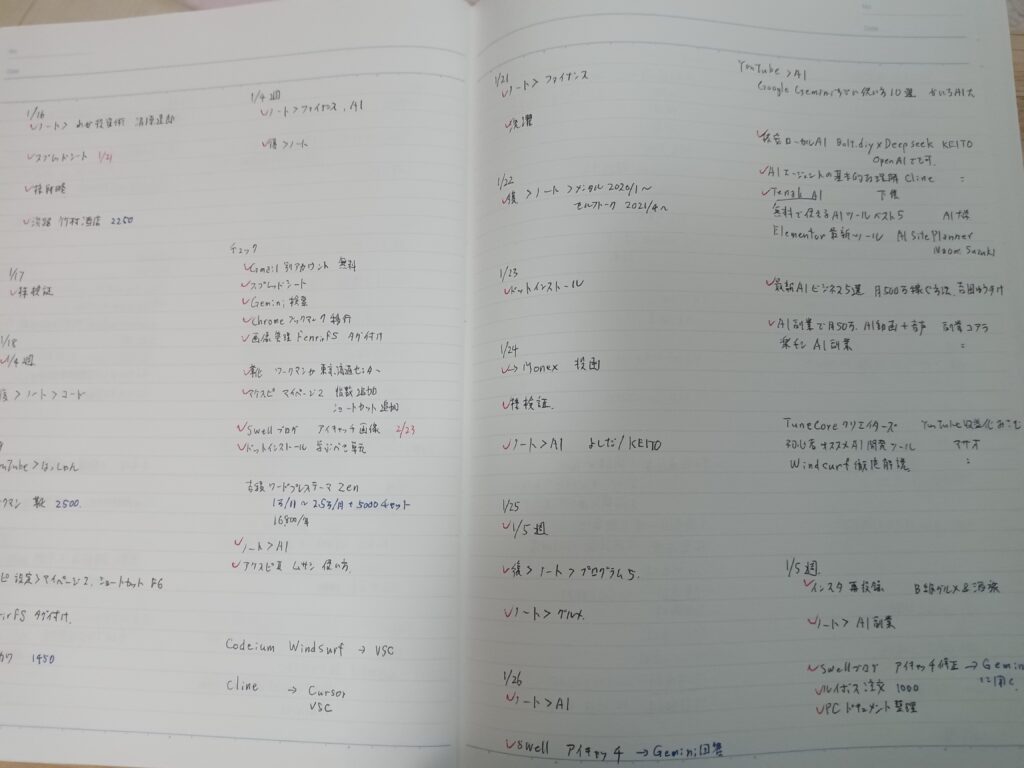 1/16
ノート>
スプレッドシート 1/21
淡路 竹村酒店 2250
1/17
株検証
1/18
1/4週
後>ノート>コード
YouTube>
靴 2500
設定>マイページ2、ショートカット F6
タグ付け
1450
1/4週
ノート>ファイナンス、AI
後>ノート
チェック
Gmail 別アカウント 無料
スプレッドシート
Gemini 検索
Chrome ブックマーク 移行
画像管理 FenrirFS タグ付け
靴 ワークマンか東京流通センター
アクスピ マイページ2 指数追加
ショートカット追加
Swellブログ アイキャッチ画像 2/23
ドットインストール 学ぶべき単元
ワードプレステーマ Zen
16400/年
ノート>AI
使い方
Codeium Windsurf → VSC
Cline → Cursor
VSC
1/21
ノート>ファイナンス
洗濯
1/22
後>ノート>メンタル 2020/1〜
セルフトーク 2021/4〜
1/23
ドットインストール
1/24
→ Monex 投函
株検証
ノート>AI よしだ/KEITO
1/25
1/5週
後>ノート>プログラム5
ノート>グルメ
1/26
ノート>AI
Swell アイキャッチ → Gemini回答
YouTube>AI
Google Geminiすごい使い方10選 かいろAI大
ローカルAI Bolt.diy×Deepseek KEITO
OpenAIでです
AIエージェントの基本的な理解 Cline 〃
AI
無料で使えるAIツールベスト5 AI大学
Elementor最新ツール AI SitePlanner
Naomi Suzuki
最新AIビジネス5選 月500万稼ぐ方法
AI副業で月50万 AI動画+音声 副業コアラ
楽チンAI副業 〃
TuneCoreクリエイターズ YouTube収益化
初心者オススメAI開発ツール マサオ
Windsurf徹底解説 〃
1/5週
インスタ 再投稿 B級グルメ&酒旅
ノート>AI副業
Swellブログ アイキャッチ修正 → Gemini
に聞く
ルイボス注文 1000
PCドキュメント整理